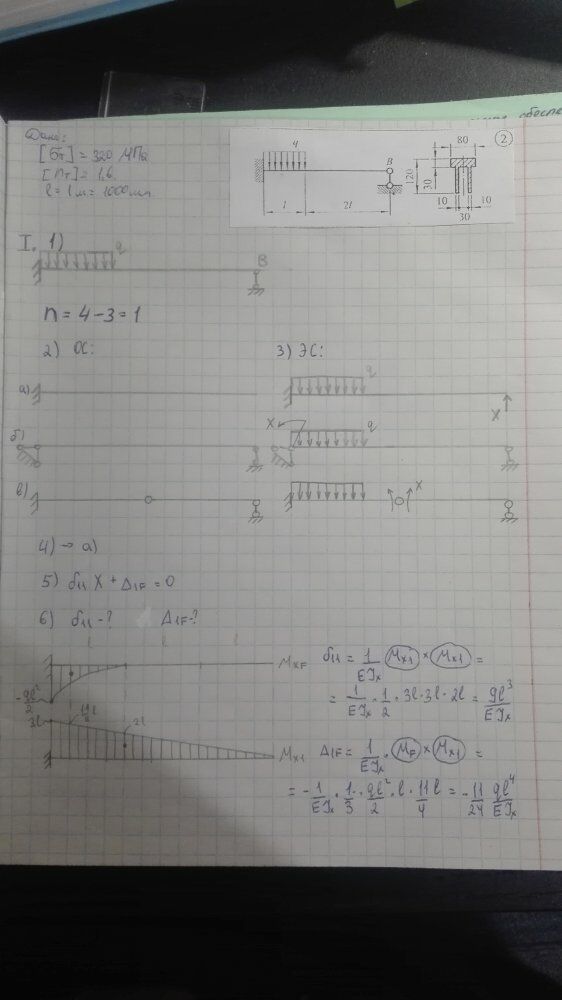 обеспе
Дано:
[σт] = 320 МПа
[nт] = 1,6
l = 1 м = 1000 мм
q
B
l
2l
80
2
120
30
10
10
30
I. 1)
q
B
n = 4 - 3 = 1
2) ОС:
3) ЭС:
а)
q
X
б)
X
q
в)
X
4) → а)
5) δ11 X + Δ1F = 0
6) δ11 - ? Δ1F - ?
l l l
MXF
-ql²/2
3l
11/4 l
2l
MX1
δ11 = 1/EJx (MX1) × (MX1) =
= 1/EJx · 1/2 · 3l · 3l · 2l = 9l³/EJx
Δ1F = 1/EJx · (MF) × (MX1) =
= -1/EJx · 1/3 · ql²/2 · l · 11l/4 = -11/24 ql⁴/EJx